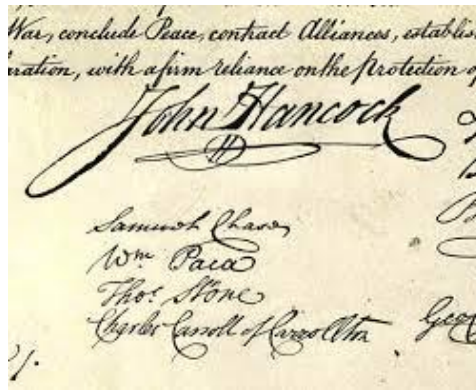 War, conclude Peace, contract Alliances, establis
ration, with a firm reliance on the Protection o
John Hancock
Samuel Chase
Wm Paca
Thos Stone
Charles Carroll of Carrollton
Geo